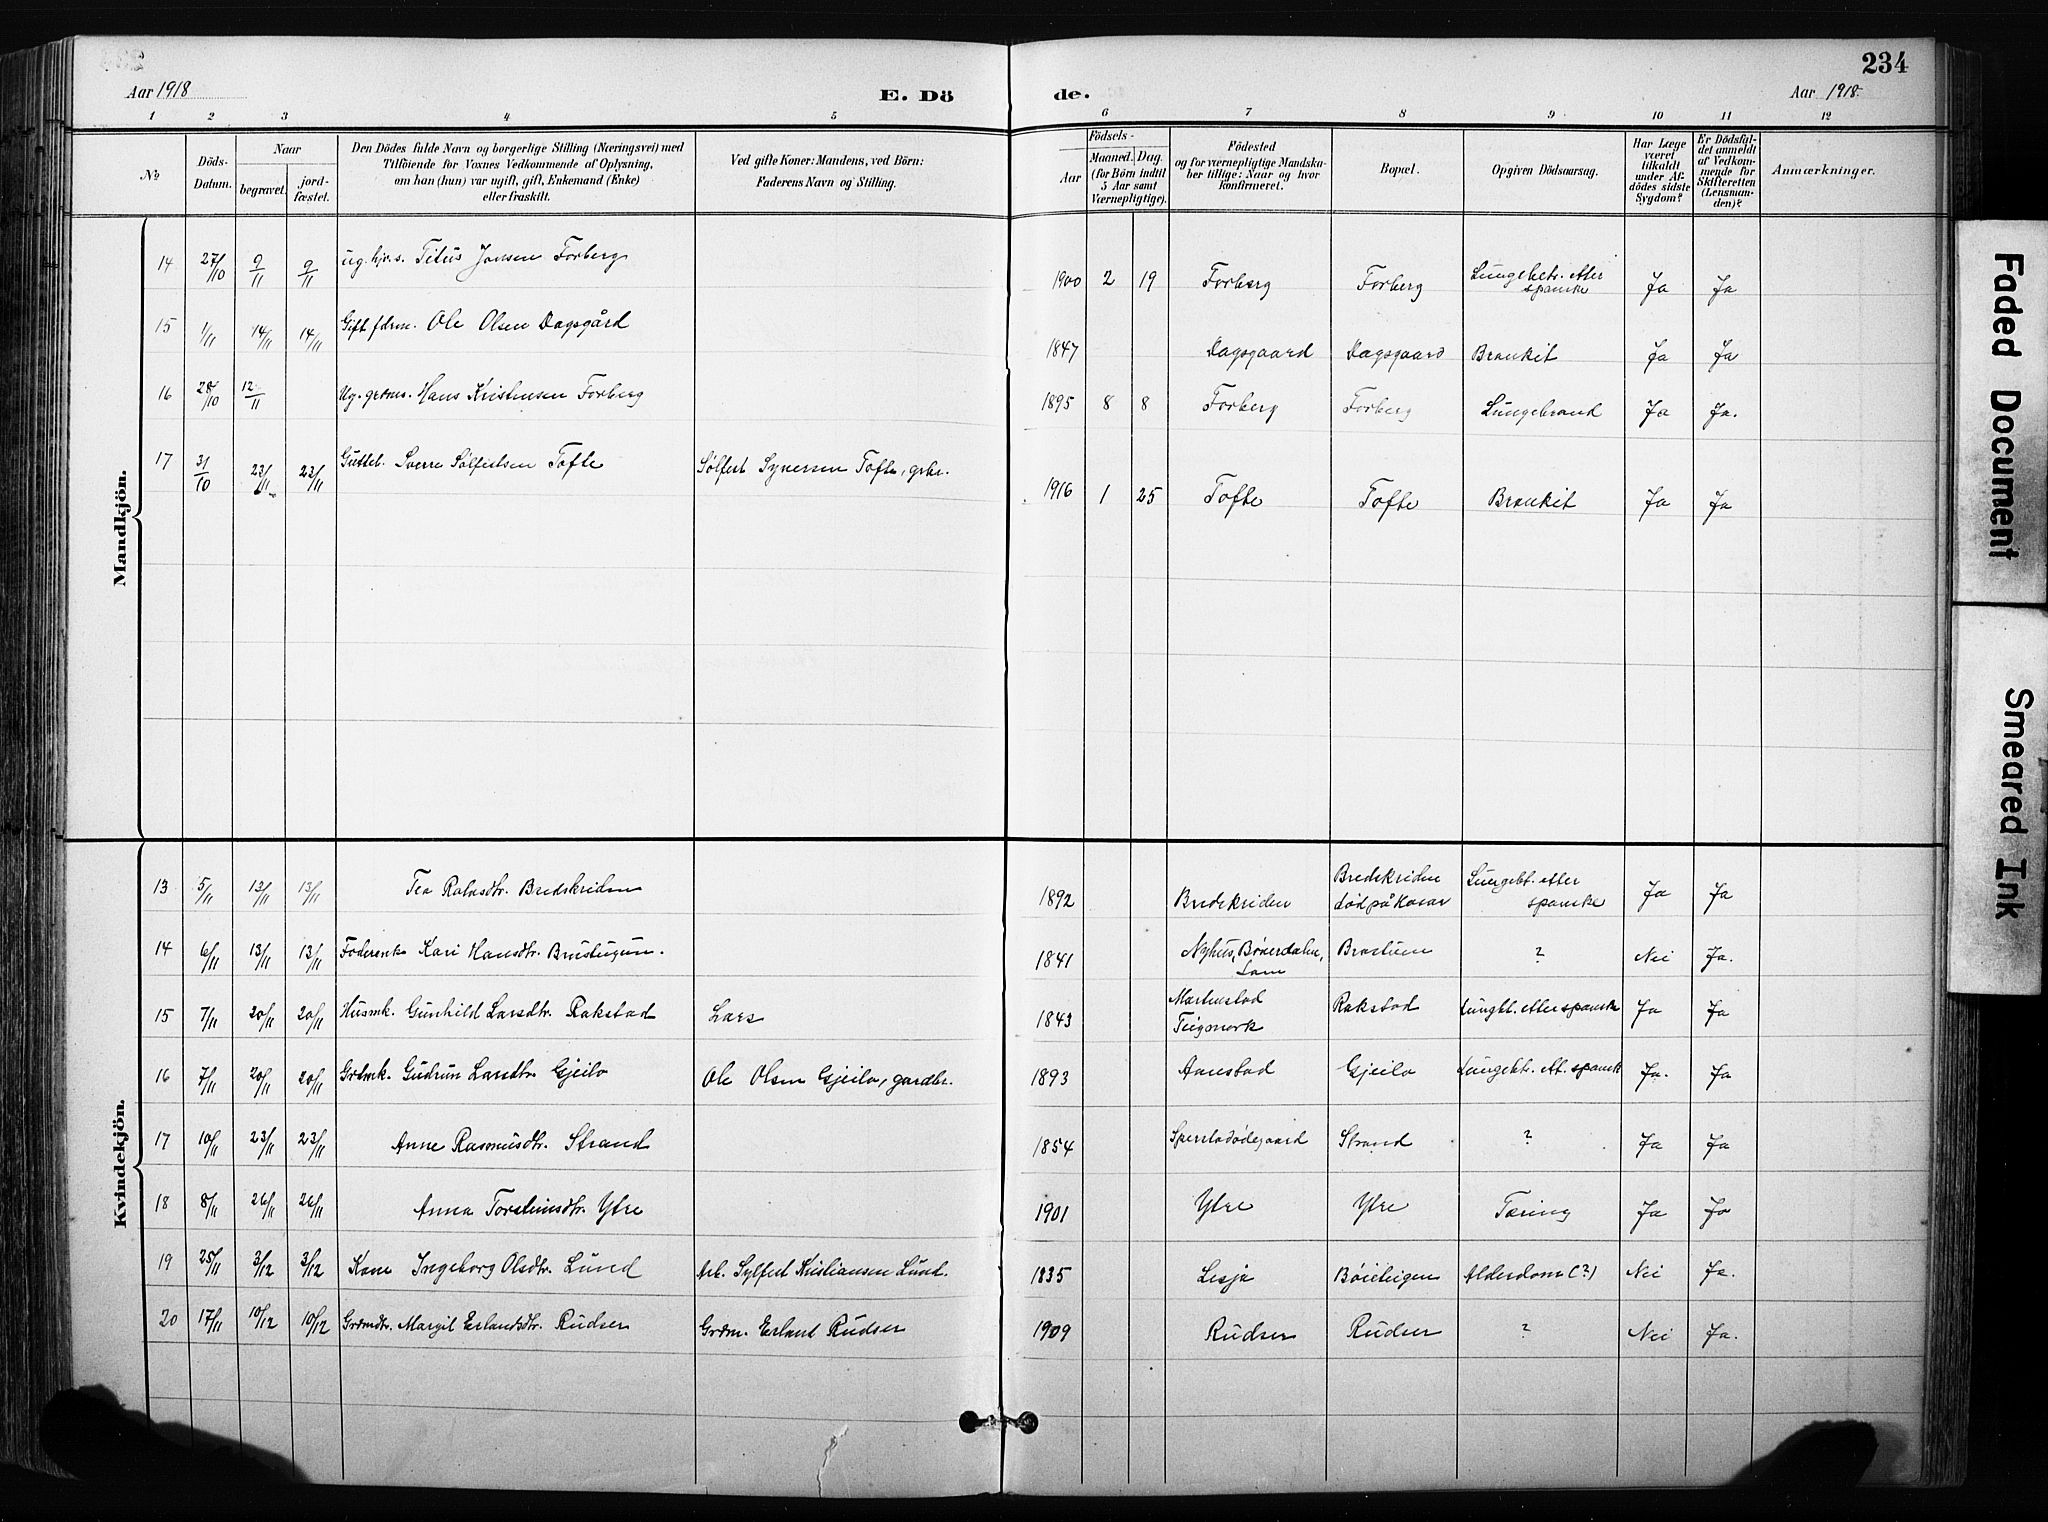 234
Aar 1918
E. Dö
de.
Aar 1918.
1 2 3 4 5 6 7 8 9 10 11 12
No
Döds-Datum.
Naar
begravet.
jord-fæstet.
Den Dödes fulde Navn og borgerlige Stilling (Næringsvei) med
Tilföiende for Voxnes Vedkommende af Oplysning,
om han (hun) var ugift, gift, Enkemand (Enke)
eller fraskilt.
Ved gifte Koner: Mandens, ved Börn:
Faderens Navn og Stilling.
Födsels-
Aar
Maaned. Dag.
(for Börn indtil
5 Aar samt
Værnepligtige).
Födested
og for værnepligtige Mandska-
ber tillige: Naar og hvor
konfirmeret.
Bopæl.
Opgiven Dödsaarsag.
Har Læge
været
tilkaldt
under Af-
dödes sidste
Sygdom?
Er Dödsfal-
det anmeldt
af Vedkom-
mende for
Skifteretten
(Lensman-
den)?
Anmærkninger.
Mandkjön.
14 27/10 9/11 9/11 ug. Titus Jonsen Forberg 1900 2 19 Forberg Forberg Lungebetr. etter spanske Ja Ja
15 1/11 14/11 14/11 Gift fdrm. Ole Olsen Dagsgård 1847 Dagsgaard Dagsgaard Bronkit Ja Ja
16 28/10 12/11 Ug. grdms. Hans Kristensen Forberg 1895 8 8 Forberg Forberg Lungebrand Ja Ja.
17 31/10 23/11 23/11 Gutteb. Sverre Sølfestsen Tofte Sølfest Syversen Tofte, grbr. 1916 1 25 Tofte Tofte Bronkit Ja Ja
Kvindekjön.
13 5/11 13/11 13/11 Tea Bredskriden 1892 Bredskriden Bredskriden død på Lungebt. etter spanske Ja Ja
14 6/11 13/11 13/11 Føderenk Kari Hansdtr. Brustugun. 1841 Nyhus, Bøverdalen, Lom ? Nei Ja.
15 7/11 20/11 20/11 Husmk. Gunhild Larsdtr. Rakstad Lars 1843 Rakstad Lungbt. etter spanske Ja Ja
16 7/11 20/11 20/11 Grdmk. Gudrun Larsdtr. Gjeilo Ole Olsen Gjeilo, gardbr. 1893 Aanstad Gjeilo Lungebt. et. spansk Ja. Ja
17 10/11 23/11 23/11 Anne Rasmusdtr. Strand 1854 Strand ? Ja Ja
18 8/11 26/11 26/11 Anna Torsteinsdtr. Ytre 1901 Ytre Ytre Tæring Ja Ja
19 25/11 3/12 3/12 Kone Ingeborg Olsdtr. Lund Arb. Sylfest Kristiansen Lund. 1835 Lesja Bøieteigen Alderdom (?) Nei Ja.
20 17/11 10/12 10/12 Grdmdtr. Margit Erlandsdtr. Rudser Grdm. Erland Rudser 1909 Rudser Rudser ? Nei Ja.
Faded Document
Smeared Ink